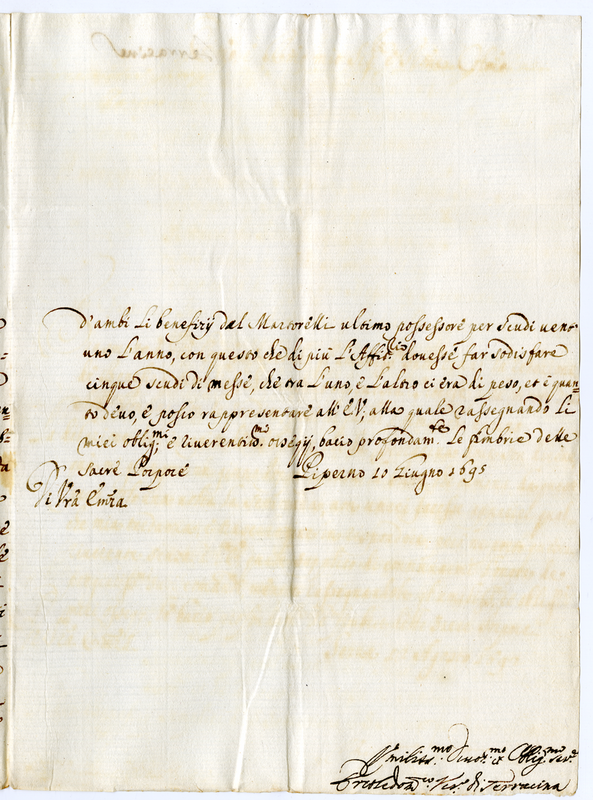 d'ambi li benefizij dal Martorelli ultimo possessore per scudi vent'
uno l'anno, con questo che di più l'Affitt.rio dovesse far sodisfare
cinque scudi di messe, che tra l'uno, e l'altro ci era di peso, et è quan=
to devo, e posso rappresentare all'E.V., alla quale rassegnando li
miei oblig.mi, e riverentiss.mi ossequij, bacio profondam.te le fimbrie delle
Sacre Porpore Piperno 10 Giugno 1695
Di V'ra Em'za
Humiliss.mo Devot.mo et Oblig.mo Ser.e
Vesc.o di Terracina